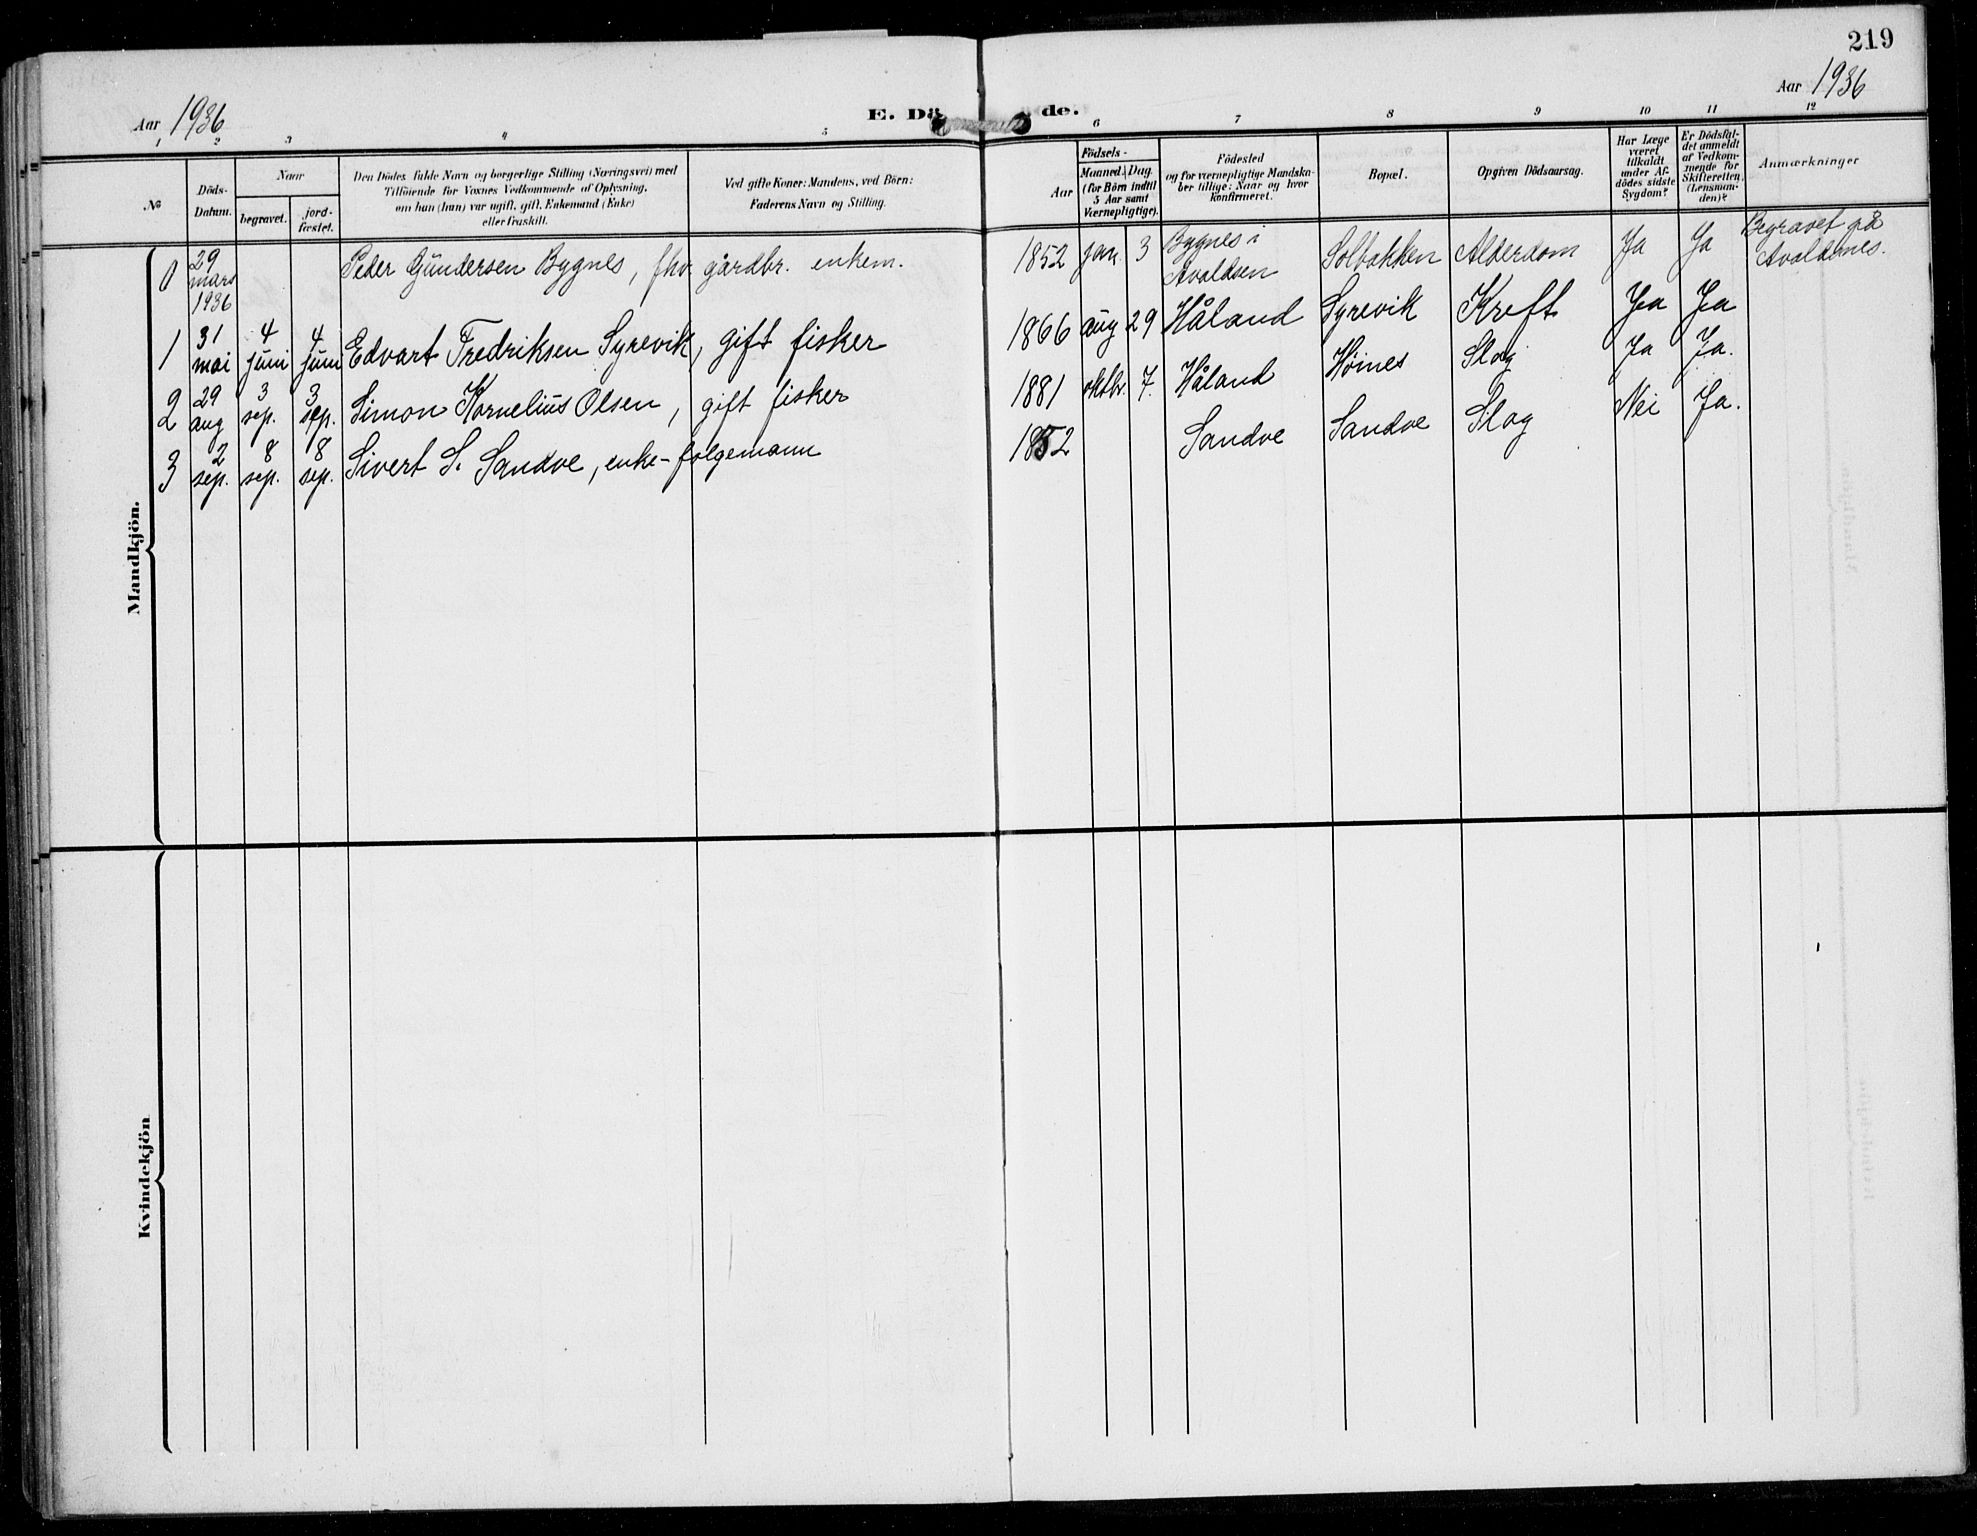 219
Aar 1936
Aar 1936
E. Dö de.
1 2 3 4 5 6 7 8 9 10 11 12
№
Döds-Datum.
Naar
begravet.
jord-fæstet.
Den Dödes fulde Navn og borgerlige Stilling (Næringsvei) med
Tilföiende for Voxnes Vedkommende af Oplysning,
om han (hun) var ugift, gift, Enkemand (Enke)
eller fraskilt.
Ved gifte Koner: Mandens, ved Börn:
Faderens Navn og Stilling.
Födsels-
Aar
Maaned. Dag.
(for Börn indtil
5 Aar samt
Værnepligtige).
Födested
og for værnepligtige Mandska-
ber tillige: Naar og hvor
konfirmeret.
Bopæl.
Opgiven Dödsaarsag.
Har Læge
været
tilkaldt
under Af-
dödes sidste
Sygdom?
Er Dödsfal-
det anmeldt
af Vedkom-
mende for
Skifteretten,
(Lensman-
den)?
Anmærkninger
Mandkjön.
0 29 mars 1936 Peder Gundersen Bygnes, fhv gårdbr. enkem. 1852 jan. 3 Bygnes i Avaldsen Solbakken Alderdom Ja Ja Begravet på Avaldsnes.
1 31 mai 4 juni 4 juni Edvart Fredriksen Syrevik, gift fisker 1866 aug 29 Håland Syrevik Kreft Ja Ja
2 29 aug 3 sep. 3 sep. Simon Kornelius Olsen, gift fisker 1881 oktbr. 7. Håland Høines Slag Ja Ja.
3 2 sep. 8 sep. 8 sep. Sivert S. Sandve, enke-folgemann 1852 Sandve Sandve Slag Nei Ja.
Kvindekjön